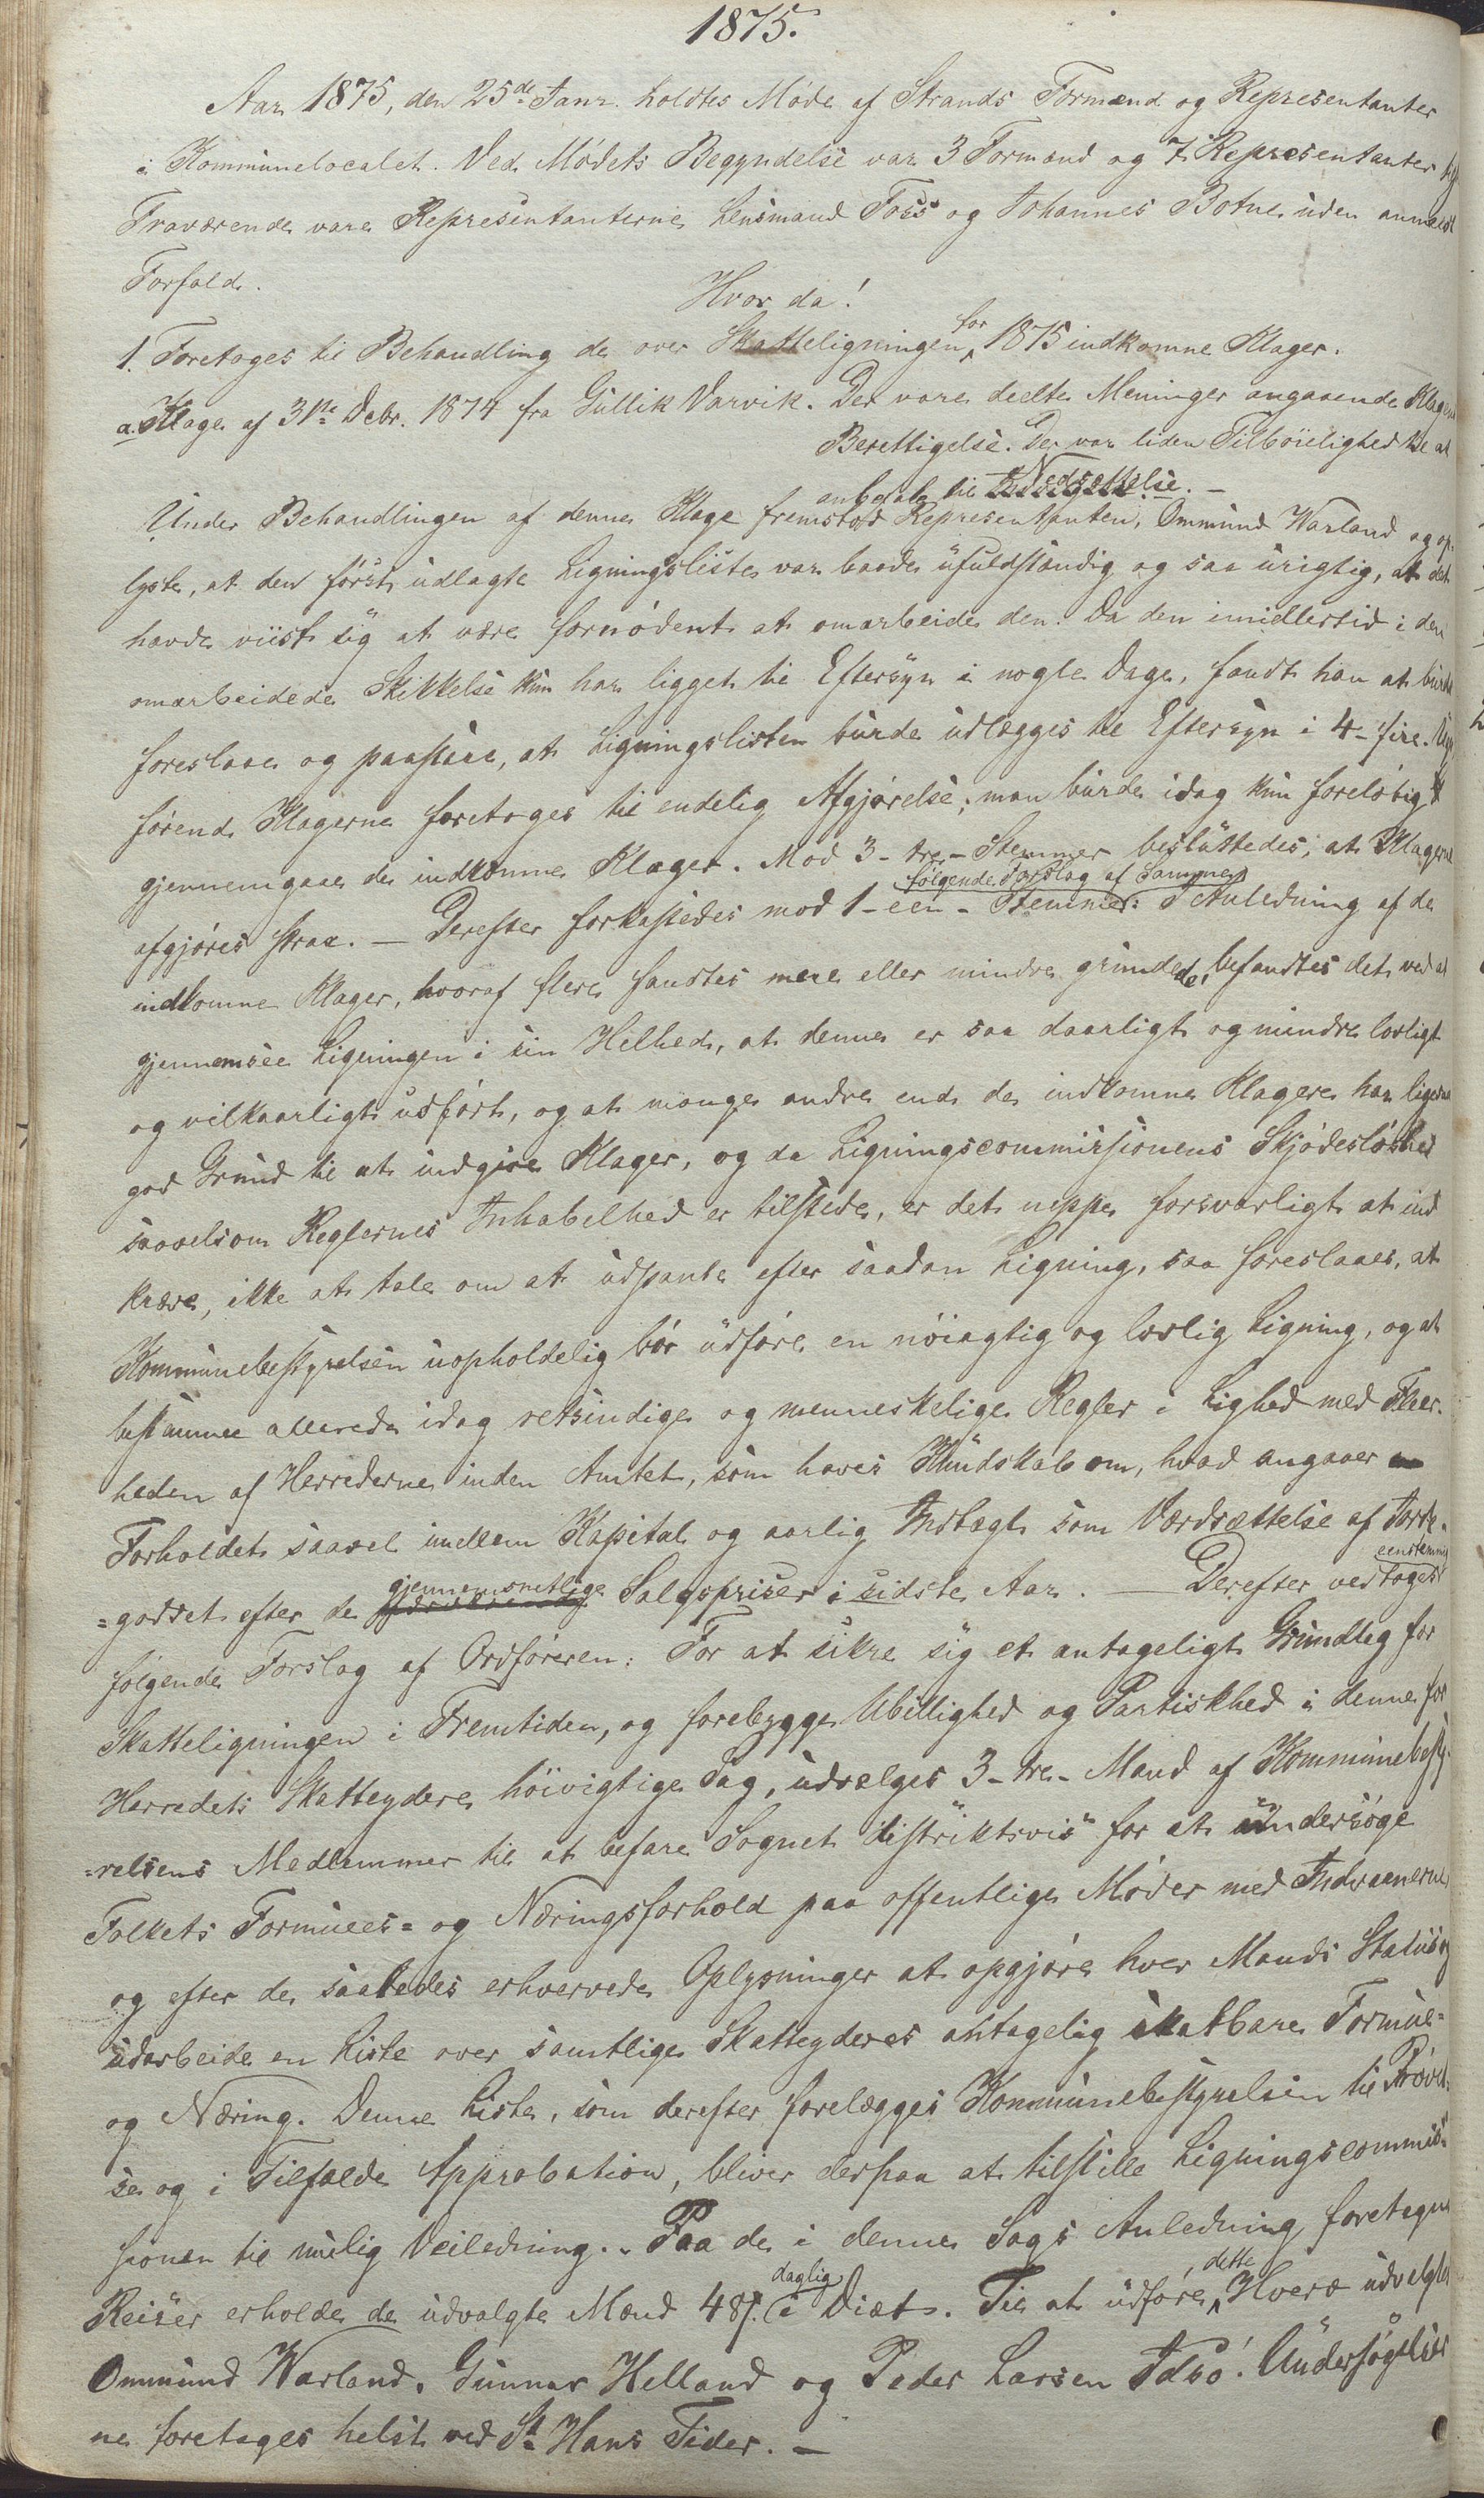 1875.
Aar 1875, den 25de Janr. holdtes Møde af Strands Formænd og Representanter
i Kommunelocalet. Ved Mødets Begyndelse var 3 Formænd og 7 Representanter
Fraværende vare Representanterne Lensmand Foss og Johannes Botne uden anmeldt
Forfald.
Hvor da!
1. Foretoges til Behandling de over Skatteligningen for 1875 indkomne Klager.
a. Klage af 31te Debr. 1874 fra Gullik Varvik. Der vare deelte Meninger angaaende Klagens
Berettigelse. Der var liden Tilbøielighed til at
anbefale til Nedsættelse. —
Under Behandlingen af denne Klage fremstod Representanten, Ommund Warland og op-
lyste, at den først udlagte Ligningsliste var baade ufuldstændig og saa urigtig, at det
havde viist sig at være fornødent at omarbeide den. Da den imidlertid i den
omarbeidede Skikkelse kun har ligget til Eftersyn i nogle Dage, fandt han at burde
foreslaae og paastaae, at Ligningslisten burde udlægges til Eftersyn i 4 - fire - Uger
førend Klagerne foretages til endelig Afgjørelse; man burde idag kun foreløbigt
gjennemgaae de indkomne Klager. Mod 3 - tre - Stemmer besluttedes, at Klagerne
afgjøres strax. — Derefter forkastedes mod 1 - een - Stemme følgende Forslag af samme: I Anledning af de
indkomne Klager, hvoraf flere fandtes mere eller mindre grundede, befandtes det ved at
gjennemsee Ligningen i sin Helhed, at denne er saa daarligt og mindre lovligt
og vilkaarligt udført, og at mange andre end de indkomne Klagere har ligesaa
god Grund til at indgive Klager, og da Ligningscommissionens Skjødesløshed
saavelsom Reglernes Inhabilhed er tilstede, er det neppe forsvarligt at ind
kræve, ikke at tale om at udpante efter saadan Ligning, saa foreslaaes, at
Kommunebestyrelsen uopholdelig bør udføre en nøiagtig og lovlig Ligning, og at
bestemme allerede idag retsindige og menneskelige Regler i Lighed med Fleer-
heden af Herrederne inden Amtet, som haves Kundskab om, hvad angaaer
Forholdet saavel imellem Kapital og aarlig Indtægt som Værdsættelse af Jorde-
=godset efter de gjennemsnitlige Salgspriser i sidste Aar. — Derefter vedtoges eenstemmig
følgende Forslag af Ordføreren: For at sikre sig et antageligt Grundlag for
Skatteligningen i Fremtiden, og forebygge Ubillighed og Partiskhed i denne for
Herredets Skatteydere høivigtige Sag, udvælges 3 - tre - Mænd af Kommunebesty-
=relsens Medlemmer til at befare Sognet distriktsvis for at undersøge
Folkets Formues- og Næringsforhold paa offentlige Møder med Indvaanerne
og efter de saaledes erhvervede Oplysninger at opgjøre hver Mands Status og
udarbeide en Liste over samtlige Skatteyderes antagelig skatbare Formue-
og Næring. Denne Liste, som derefter forelægges Kommunebestyrelsen til Prøvel-
se og i Tilfælde Approbation, bliver derpaa at tilstille Ligningscommis-
sionen til mulig Veiledning. - Paa de i denne Sags Anledning foretagne
Reiser erholde de udvalgte Mænd 48 ſ. daglig i Diæt. Til at udføre dette Hverv udvalgtes
Ommund Warland, Gunnar Helland og Peder Larsen Idsø. Undersøgelser
ne foretages helst ved St. Hans Tider. —